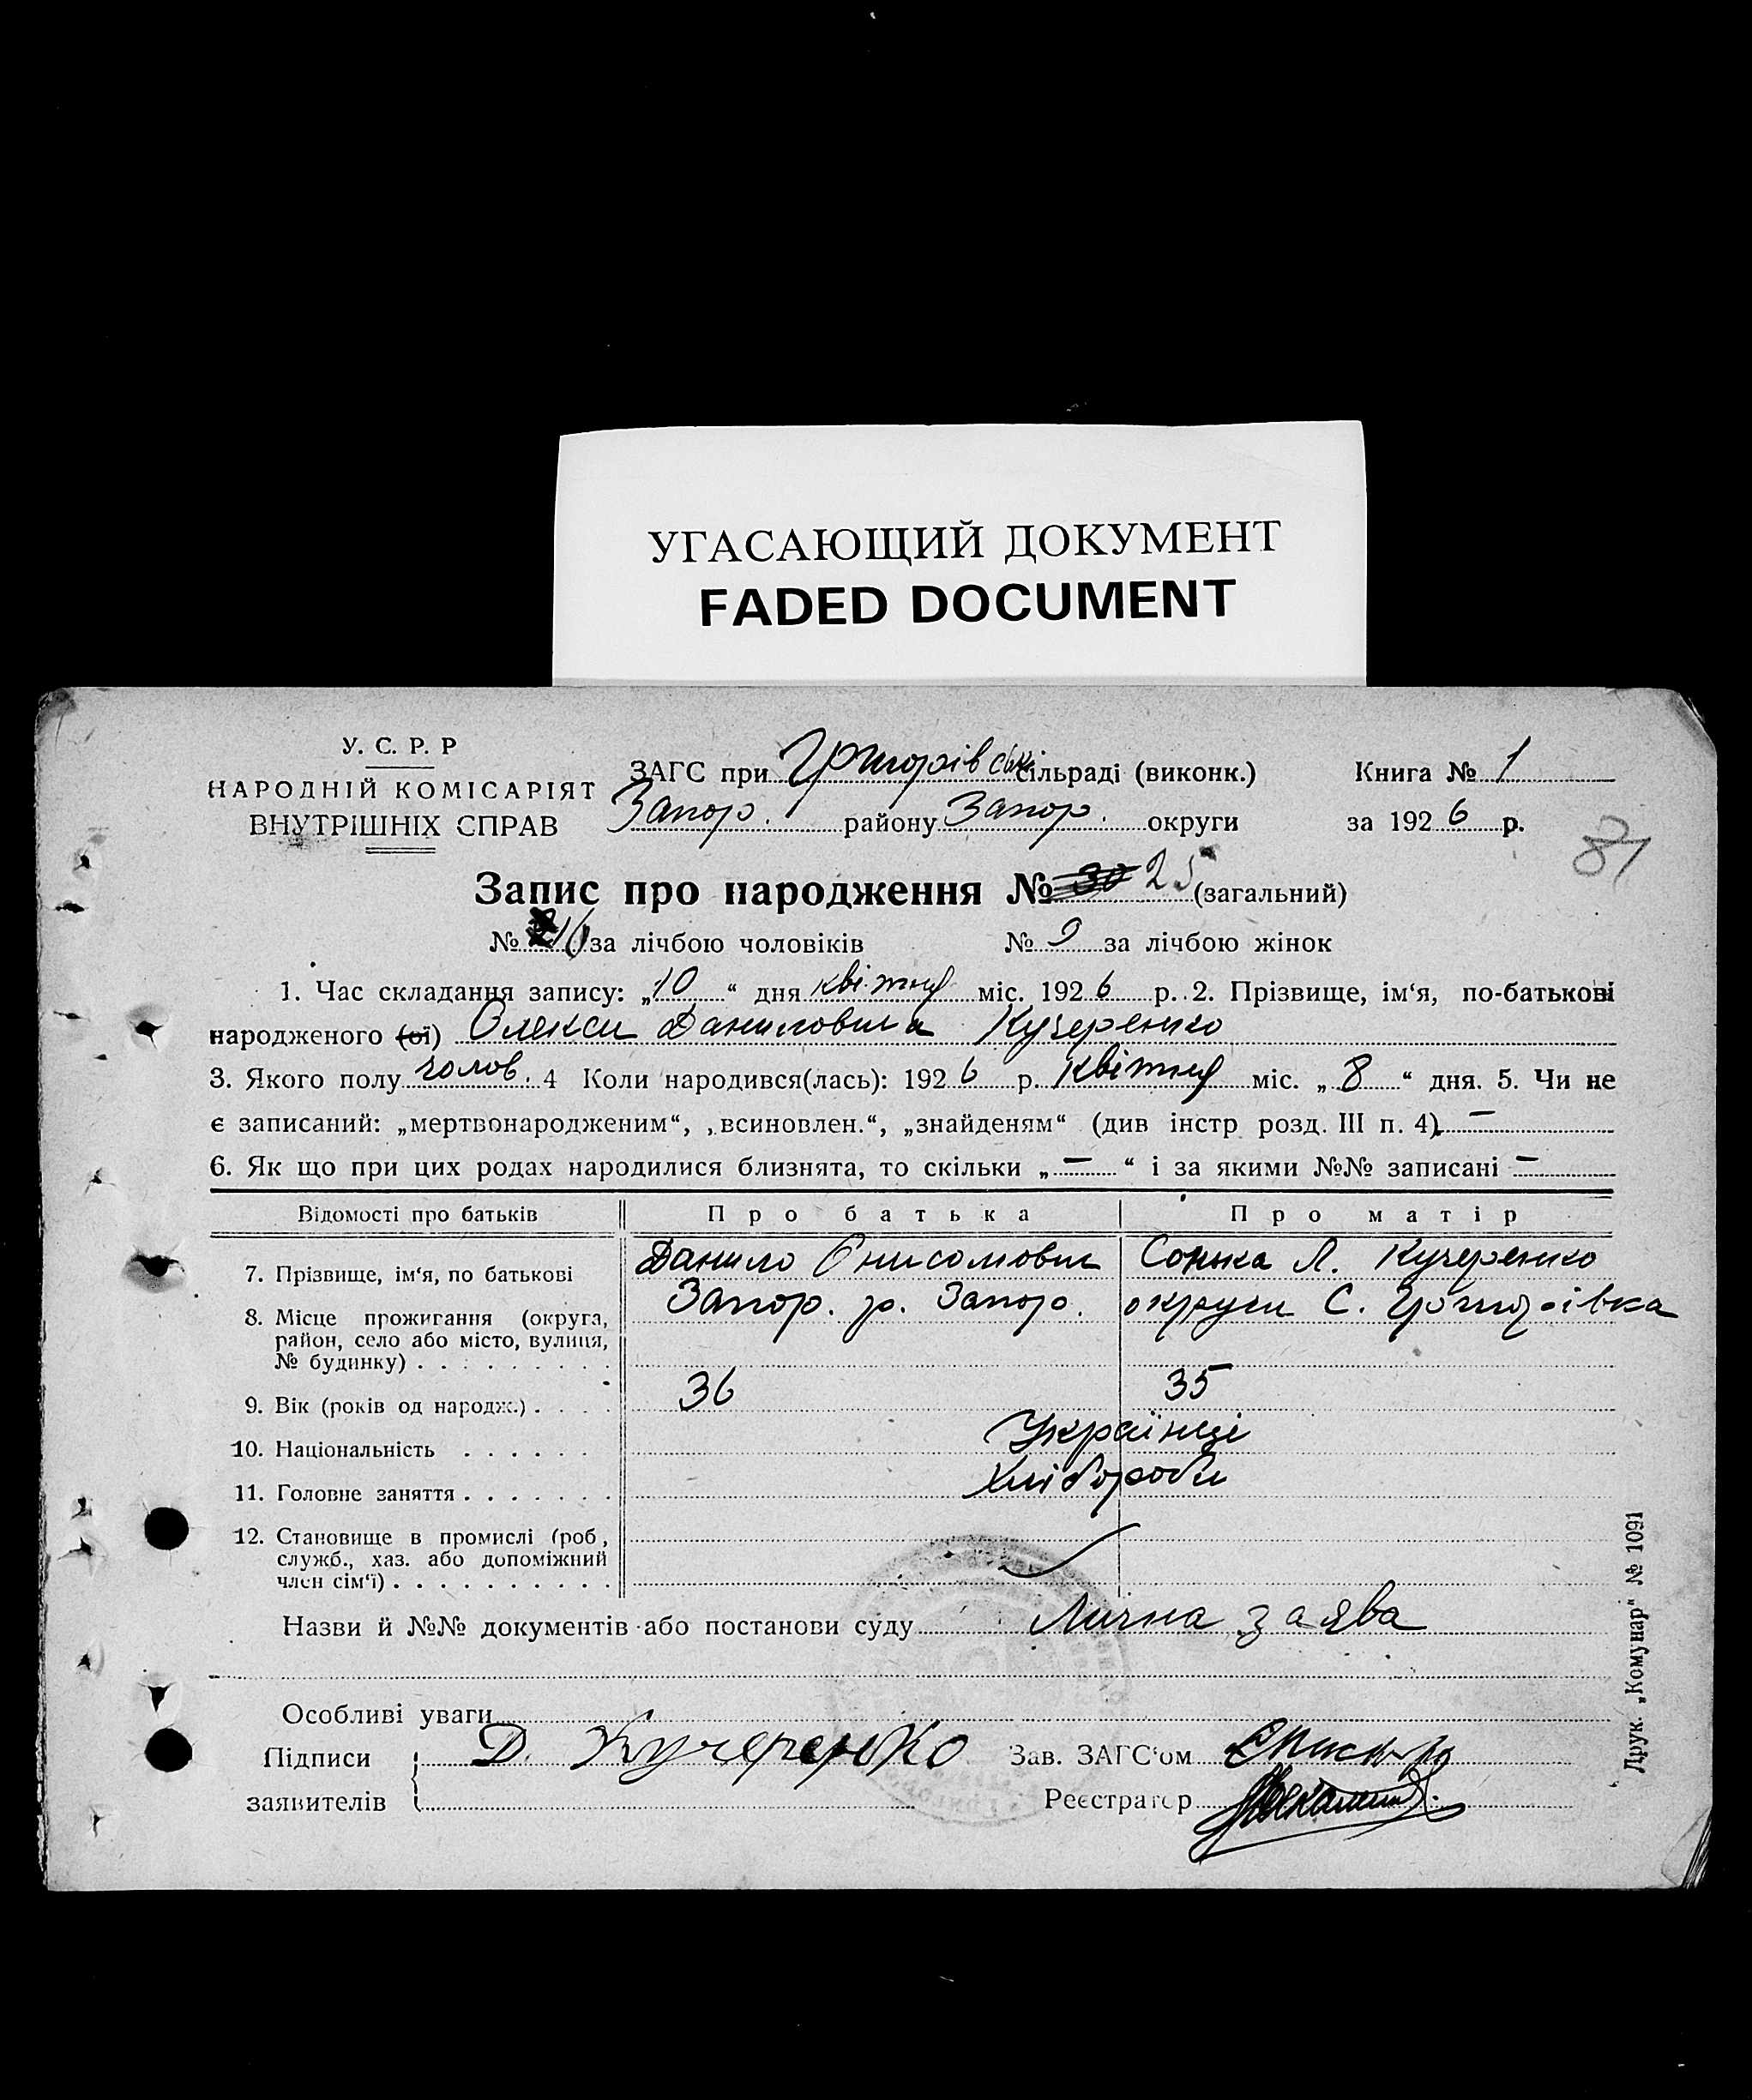 УГАСАЮЩИЙ ДОКУМЕНТ
FADED DOCUMENT
У. С. Р. Р
НАРОДНІЙ КОМІСАРІЯТ
ВНУТРІШНІХ СПРАВ
ЗАГС при Григорівськ сільраді (виконк.)
Запор. району Запор. округи
Книга № 1
за 1926 р.
81
Запис про народження № 30 25 (загальний)
№ 16 за лічбою чоловіків № 9 за лічбою жінок
1. Час складання запису: „10“ дня квітня міс. 1926 р. 2. Прізвище, ім‘я, по-батькові
народженого (ої) Олекси Даниловича Кучеренко
3. Якого полу чолов. 4 Коли народився(лась): 1926 р. Квітня міс. „8“ дня. 5. Чи не
є записаний: „мертвонародженим“, „всиновлен.“, „знайденям“ (див інстр розд. III п. 4) —
6. Як що при цих родах народилися близнята, то скільки „—“ і за якими №№ записані —
Відомості про батьків Про батька Про матір
7. Прізвище, ім‘я, по батькові Данило Онисомович Сонька Л. Кучеренко
8. Місце прожигання (округа, район, село або місто, вулиця, № будинку) Запор. р. Запор. округи С. Григорівка
9. Вік (років од народж.) 36 35
10. Національність Українці
11. Головне заняття Хлібороби
12. Становище в промислі (роб, служб., хаз. або допоміжний член сім‘ї)
Назви й №№ документів або постанови суду Лична заява
Особливі уваги
Підписи заявителів Д. Кучеренко
Зав. ЗАГС‘ом
Реєстратор
Друк. „Комунар“ № 1091